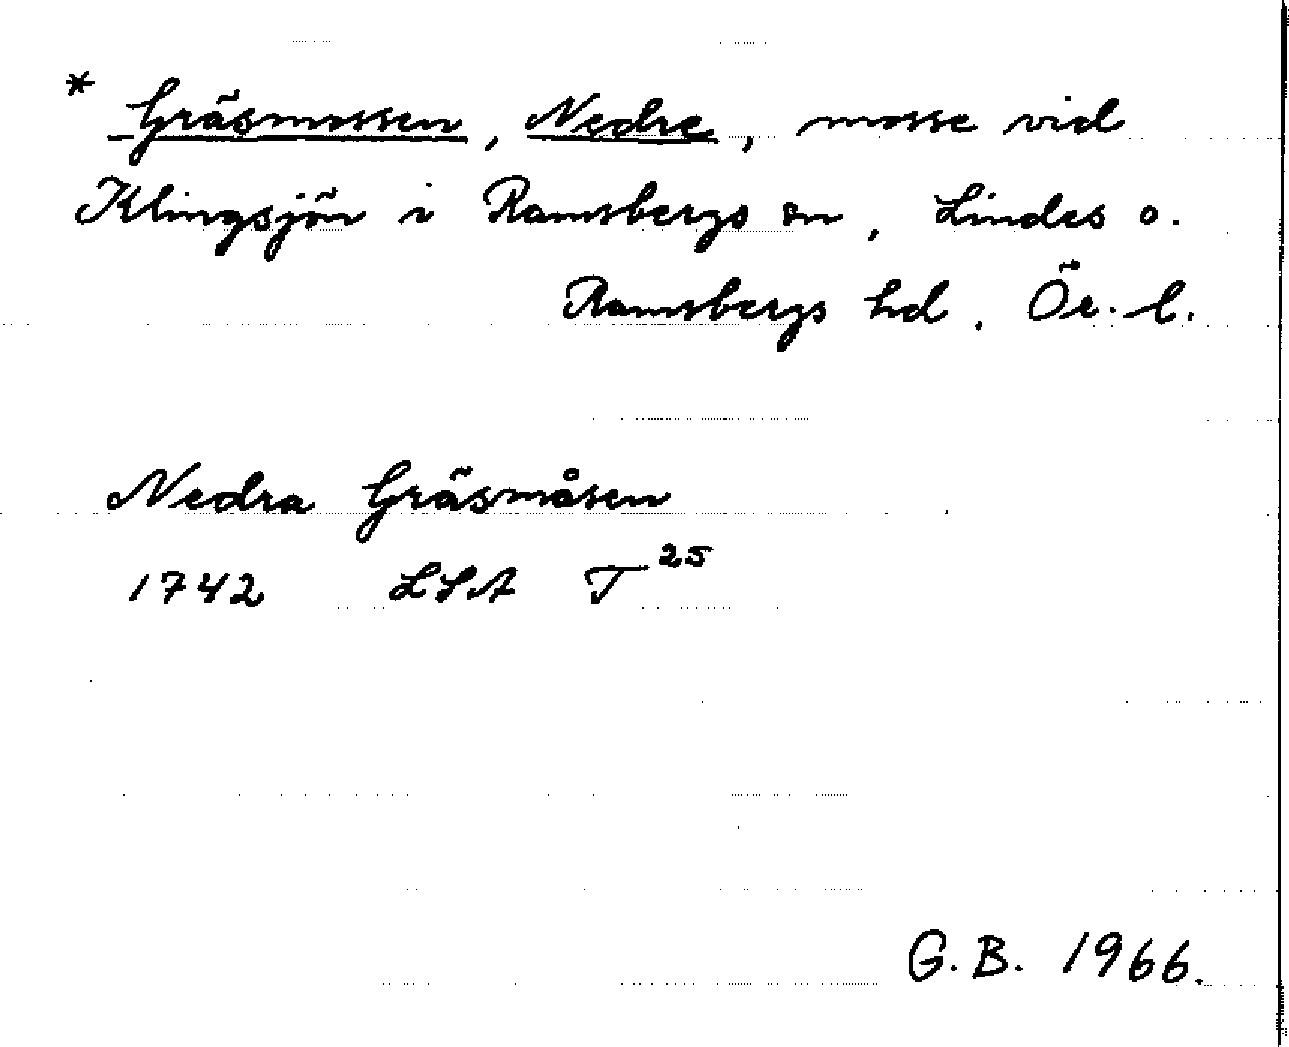 * Gräsmossen, Nedre, mosse vid
Klingsjön i Ramsbergs sn, Lindes o.
Ramsbergs hd. Ör. l.
Nedra Gräsmåsen
1742 LSA T 25
G.B. 1966.